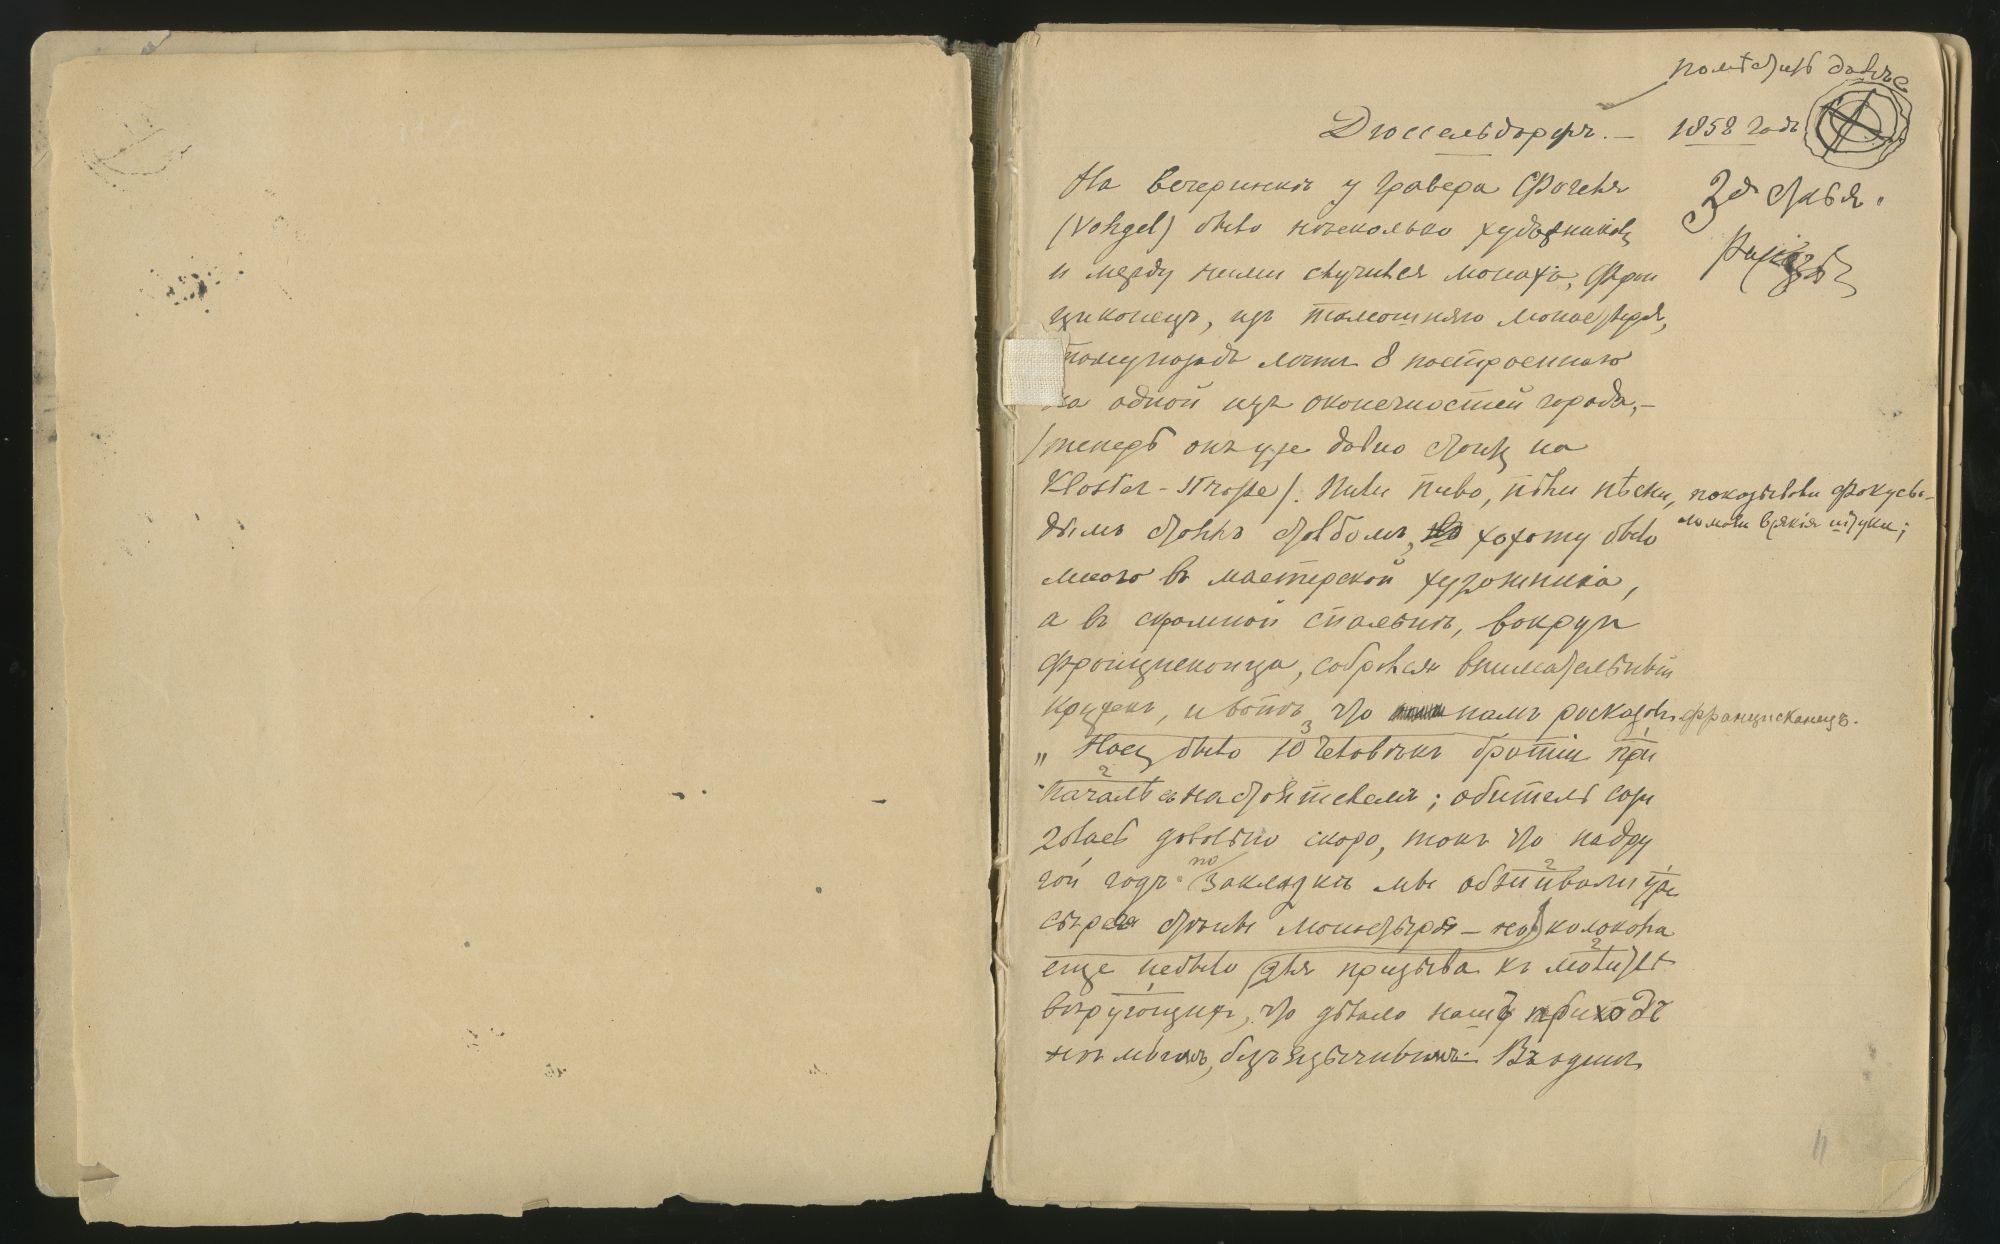 помѣстить далѣе
Дюссельдорфъ. — 1858 годъ
3я статья.
На вечеринкѣ у гравера Фогеля
(Vohgel) было нѣсколько художниковъ
и между ними случился монахъ, фран
цисконецъ, изъ тамошняго монастыря,
тому назадъ лѣтъ 8 построеннаго
на одной изъ оконечностей города, —
/теперь онъ уже давно стоитъ на
Kloster-Strasse/. Пили пиво, пѣли пѣсни, показывали фокусы —
ломали всякія штуки;
дымъ стоялъ столбомъ, хохоту было
много въ мастерской художника,
а въ скромной спальнѣ, вокругъ
францисконца, собрался внимательный
кружекъ, и вотъ что намъ росказалъ францисканецъ.
„Насъ было 10 человѣкъ братіи при
началѣ съ настоятелемъ; обитель сози
далась довольно скоро, такъ что на дру
гой годъ по закладкѣ мы обживали уже
сырыя стѣны монастыря — но колокола
еще небыло для призыва къ молитвѣ
вѣрующихъ, что дѣлало нашъ приходъ
нѣмымъ, безъязычнымъ. Въ одинъ
11